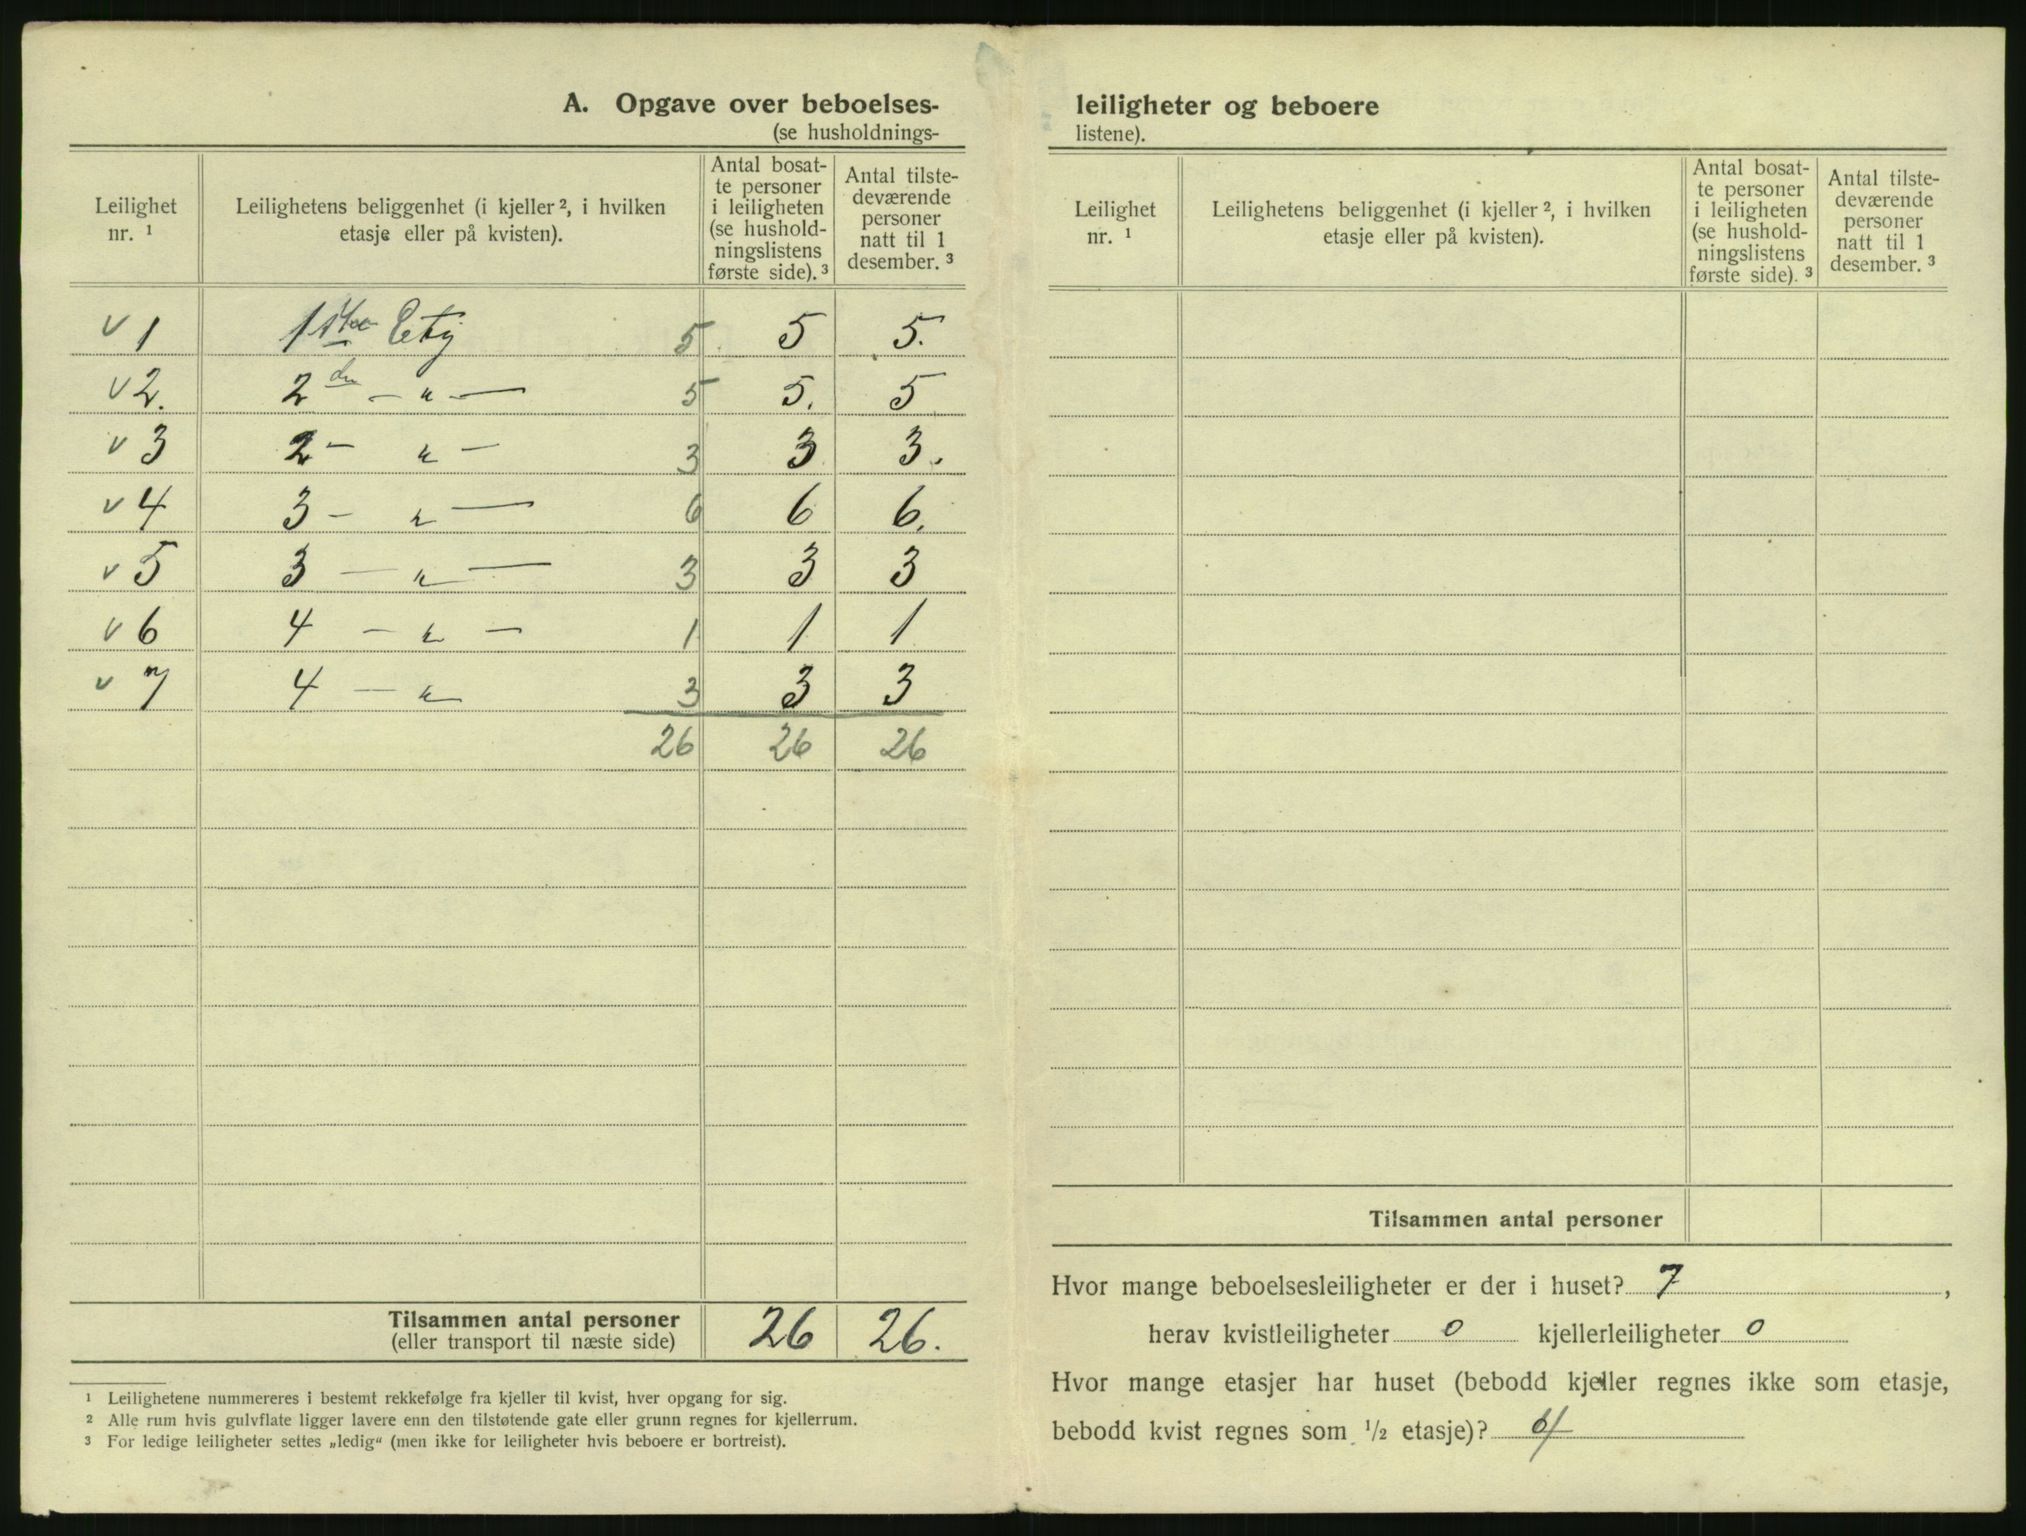 A. Opgave over beboelses-
(se husholdnings-
Leilighet
nr. 1
Leilighetens beliggenhet (i kjeller 2, i hvilken
etasje eller på kvisten).
Antal bosat-
te personer
i leiligheten
(se hushold-
ningslistens
første side). 3
Antal tilste-
deværende
personer
natt til 1
desember. 3
v 1 1ste Etg 5 5 5.
v 2. 2den — " — 5 5. 5
v 3 2 — " — 3 3 3.
v 4 3 — " — 6 6 6.
v 5 3 — " — 3 3 3
v 6 4 — " — 1 1 1
v 7 4 — " 3 3 3
26 26 26
Tilsammen antal personer 26 26.
(eller transport til næste side)
1 Leilighetene nummereres i bestemt rekkefølge fra kjeller til kvist, hver opgang for sig.
2 Alle rum hvis gulvflate ligger lavere enn den tilstøtende gate eller grunn regnes for kjellerrum.
3 For ledige leiligheter settes „ledig“ (men ikke for leiligheter hvis beboere er bortreist).
leiligheter og beboere
listene).
Leilighet
nr. 1
Leilighetens beliggenhet (i kjeller 2, i hvilken
etasje eller på kvisten).
Antal bosat-
te personer
i leiligheten
(se hushold-
ningslistens
første side). 3
Antal tilste-
deværende
personer
natt til 1
desember. 3
Tilsammen antal personer
Hvor mange beboelsesleiligheter er der i huset? 7,
herav kvistleiligheter 0 kjellerleiligheter 0
Hvor mange etasjer har huset (bebodd kjeller regnes ikke som etasje,
bebodd kvist regnes som 1/2 etasje)? 4